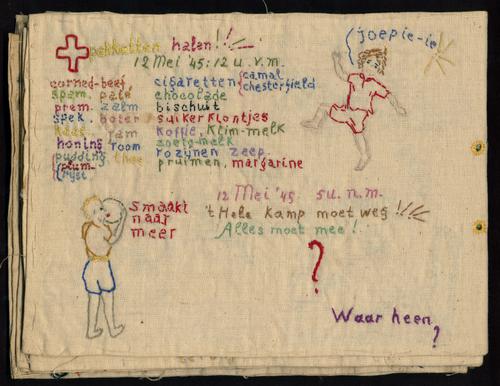 joepie-ie
pakketten halen!!
12 Mei '45: 12 u. v.m.
corned-beef, cigaretten {camal
chesterfield
spam. paté chocolade
prem. zalm bischuit
spek. boter suikerklontjes
kaas jam koffie, klim-melk
honing room zoete-melk
pudding thee rozynen zeep.
{plum- pruimen, margarine
rijst
smaakt
naar
meer
12 Mei '45 5u. n.m.
't Hele Kamp moet weg!!!
Alles moet mee!
?
Waar heen
?